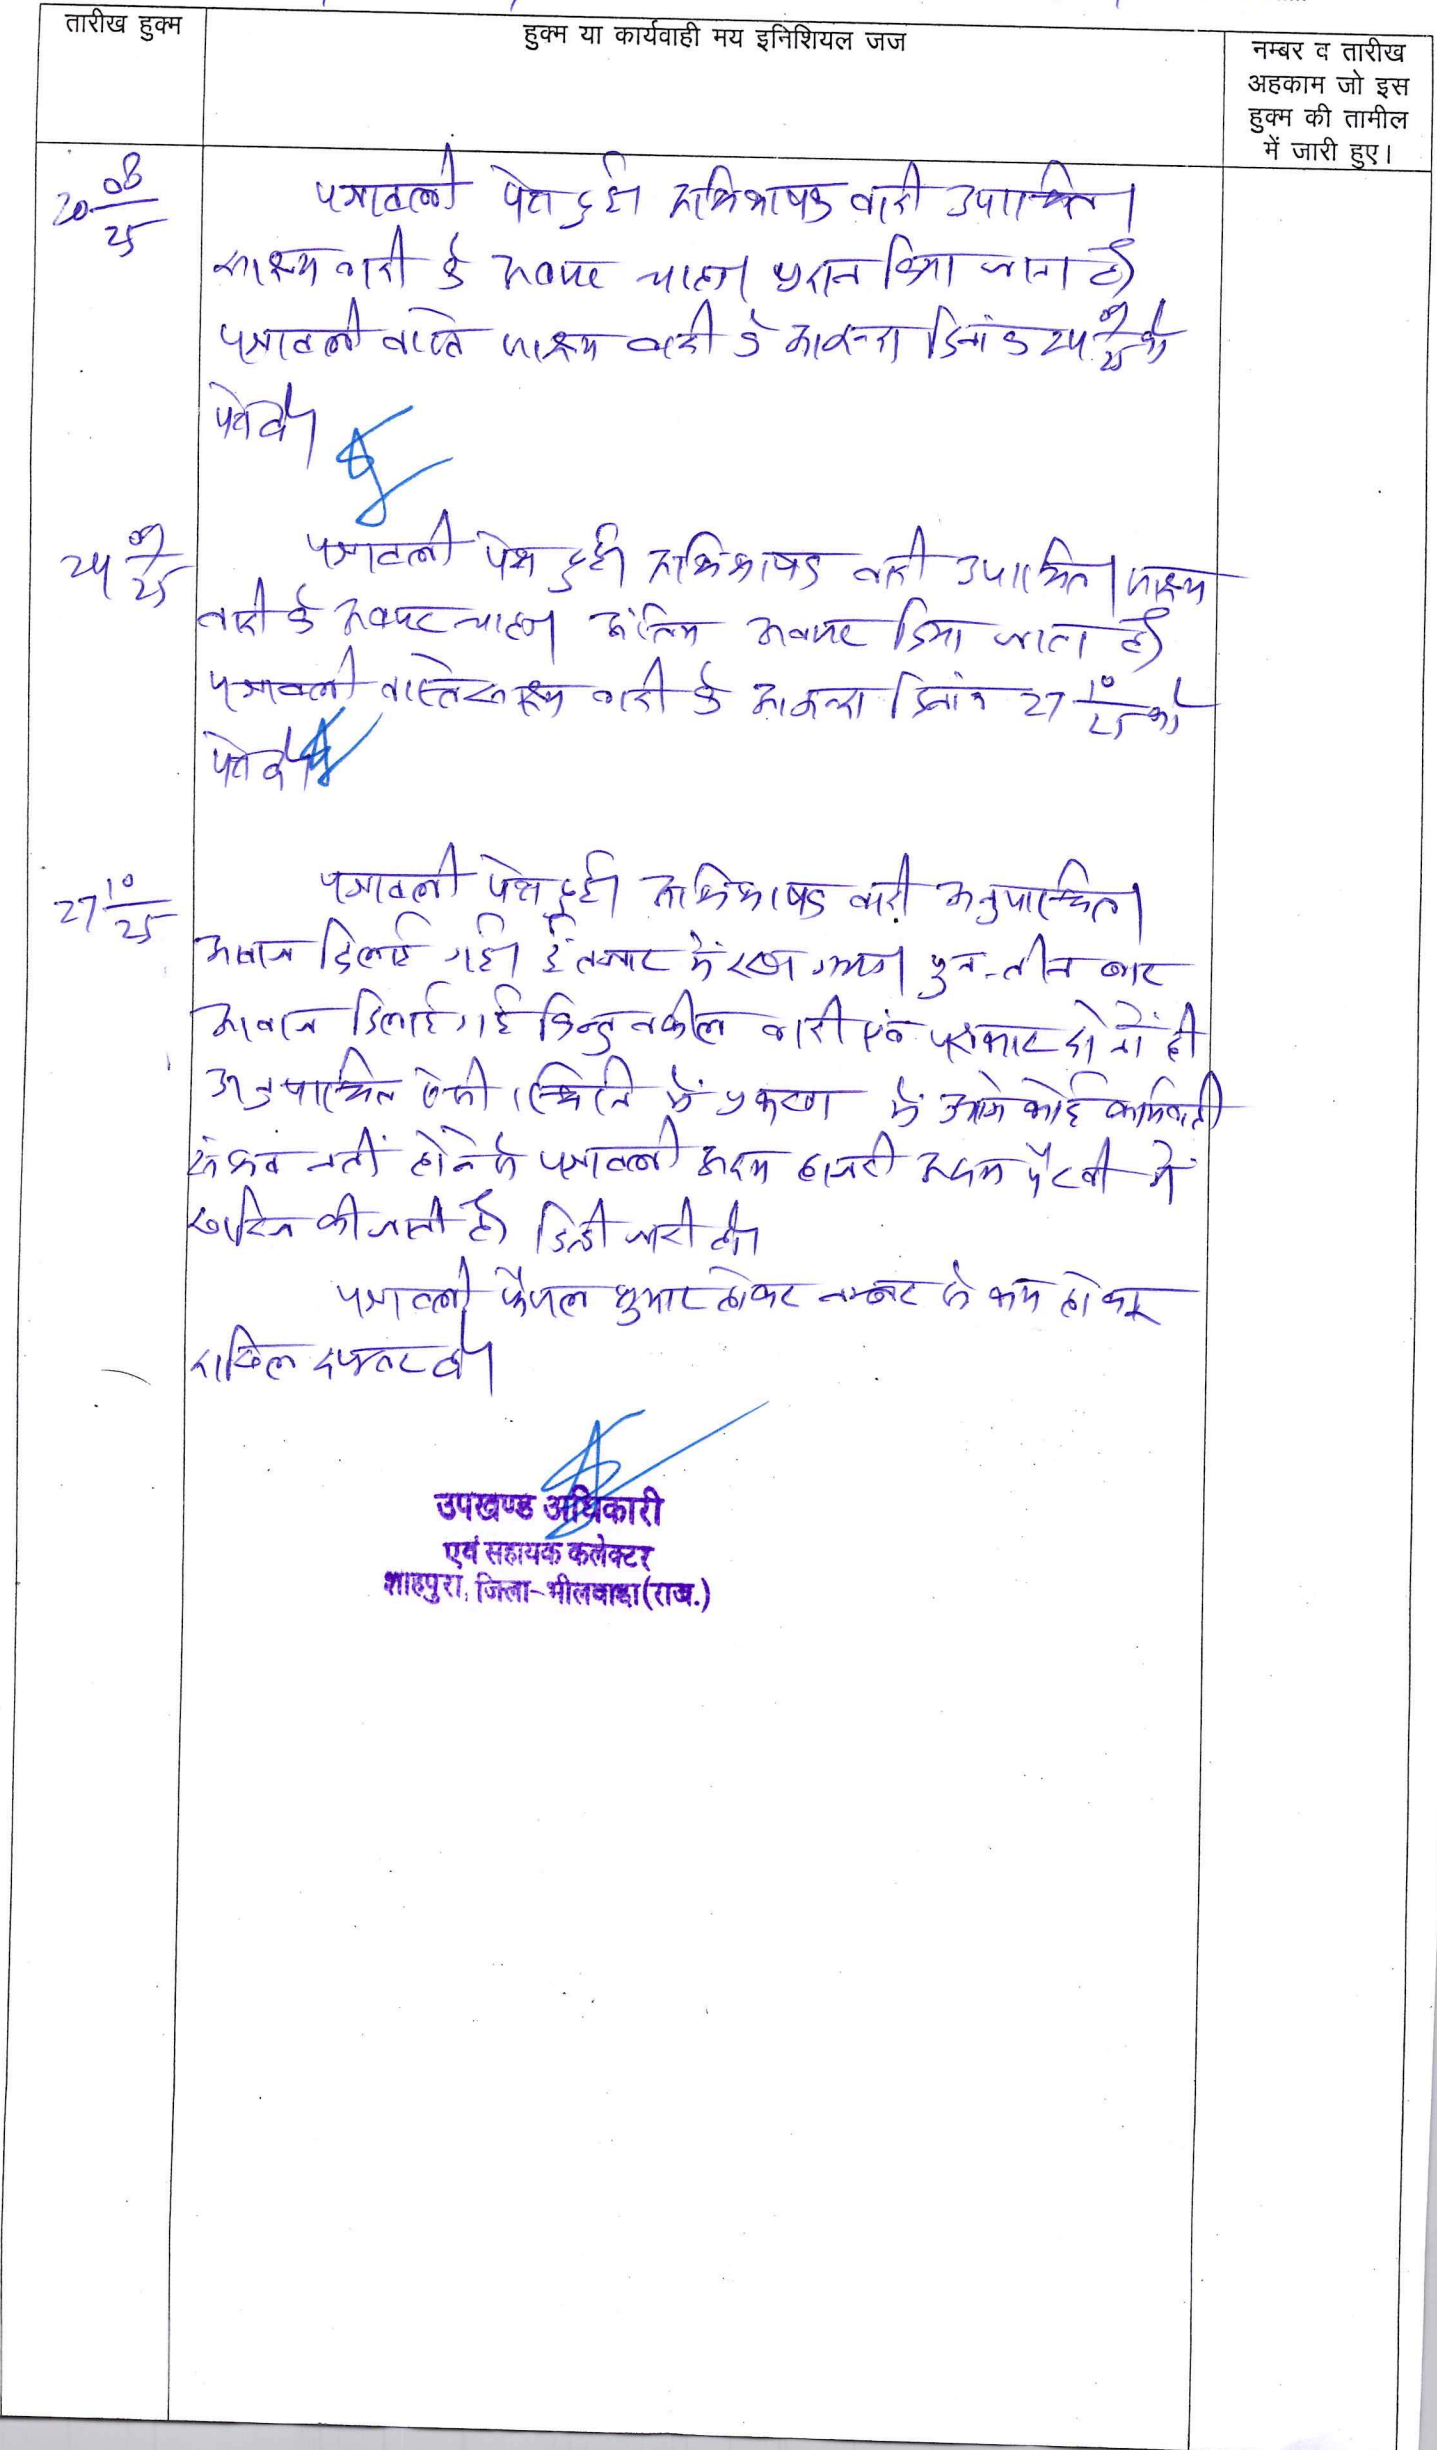 तारीख हुक्म
हुक्म या कार्यवाही मय इनिशियल जज
नम्बर व तारीख
अहकाम जो इस
हुक्म की तामील
में जारी हुए।
20 08/25
पत्रावली पेश हुई। अभिभाषक वादी उपस्थित।
साक्ष्य वादी के अवसर चाहा। प्रदान किया जाता है।
पत्रावली वास्ते साक्ष्य वादी के आईन्दा दिनांक 24 09/25 को
पेश हो।
24 09/25
पत्रावली पेश हुई। अभिभाषक वादी उपस्थित। साक्ष्य
वादी के अवसर चाहा। अंतिम अवसर दिया जाता है।
पत्रावली वास्ते साक्ष्य वादी के आईन्दा दिनांक 27 10/25 को
पेश हो।
27 10/25
पत्रावली पेश हुई। अभिभाषक वादी अनुपस्थित।
आवाज दिलाई गई। इंतजार में रखा गया। पुनः तीन बार
आवाज दिलाई गई किन्तु वकील वादी एवं पक्षकार दोनों ही
अनुपस्थित ऐसी स्थिति में प्रकरण में आगे कोई कार्यवाही
संभव नहीं होने से पत्रावली अदम हाजरी अदम पैरवी में
खारिज की जाती है। डिक्री जारी हो।
पत्रावली फैसल शुमार होकर नम्बर से कम होकर
दाखिल दफ्तर हो।
उपखण्ड अधिकारी
एवं सहायक कलेक्टर
शाहपुरा, जिला-भीलवाड़ा (राज.)